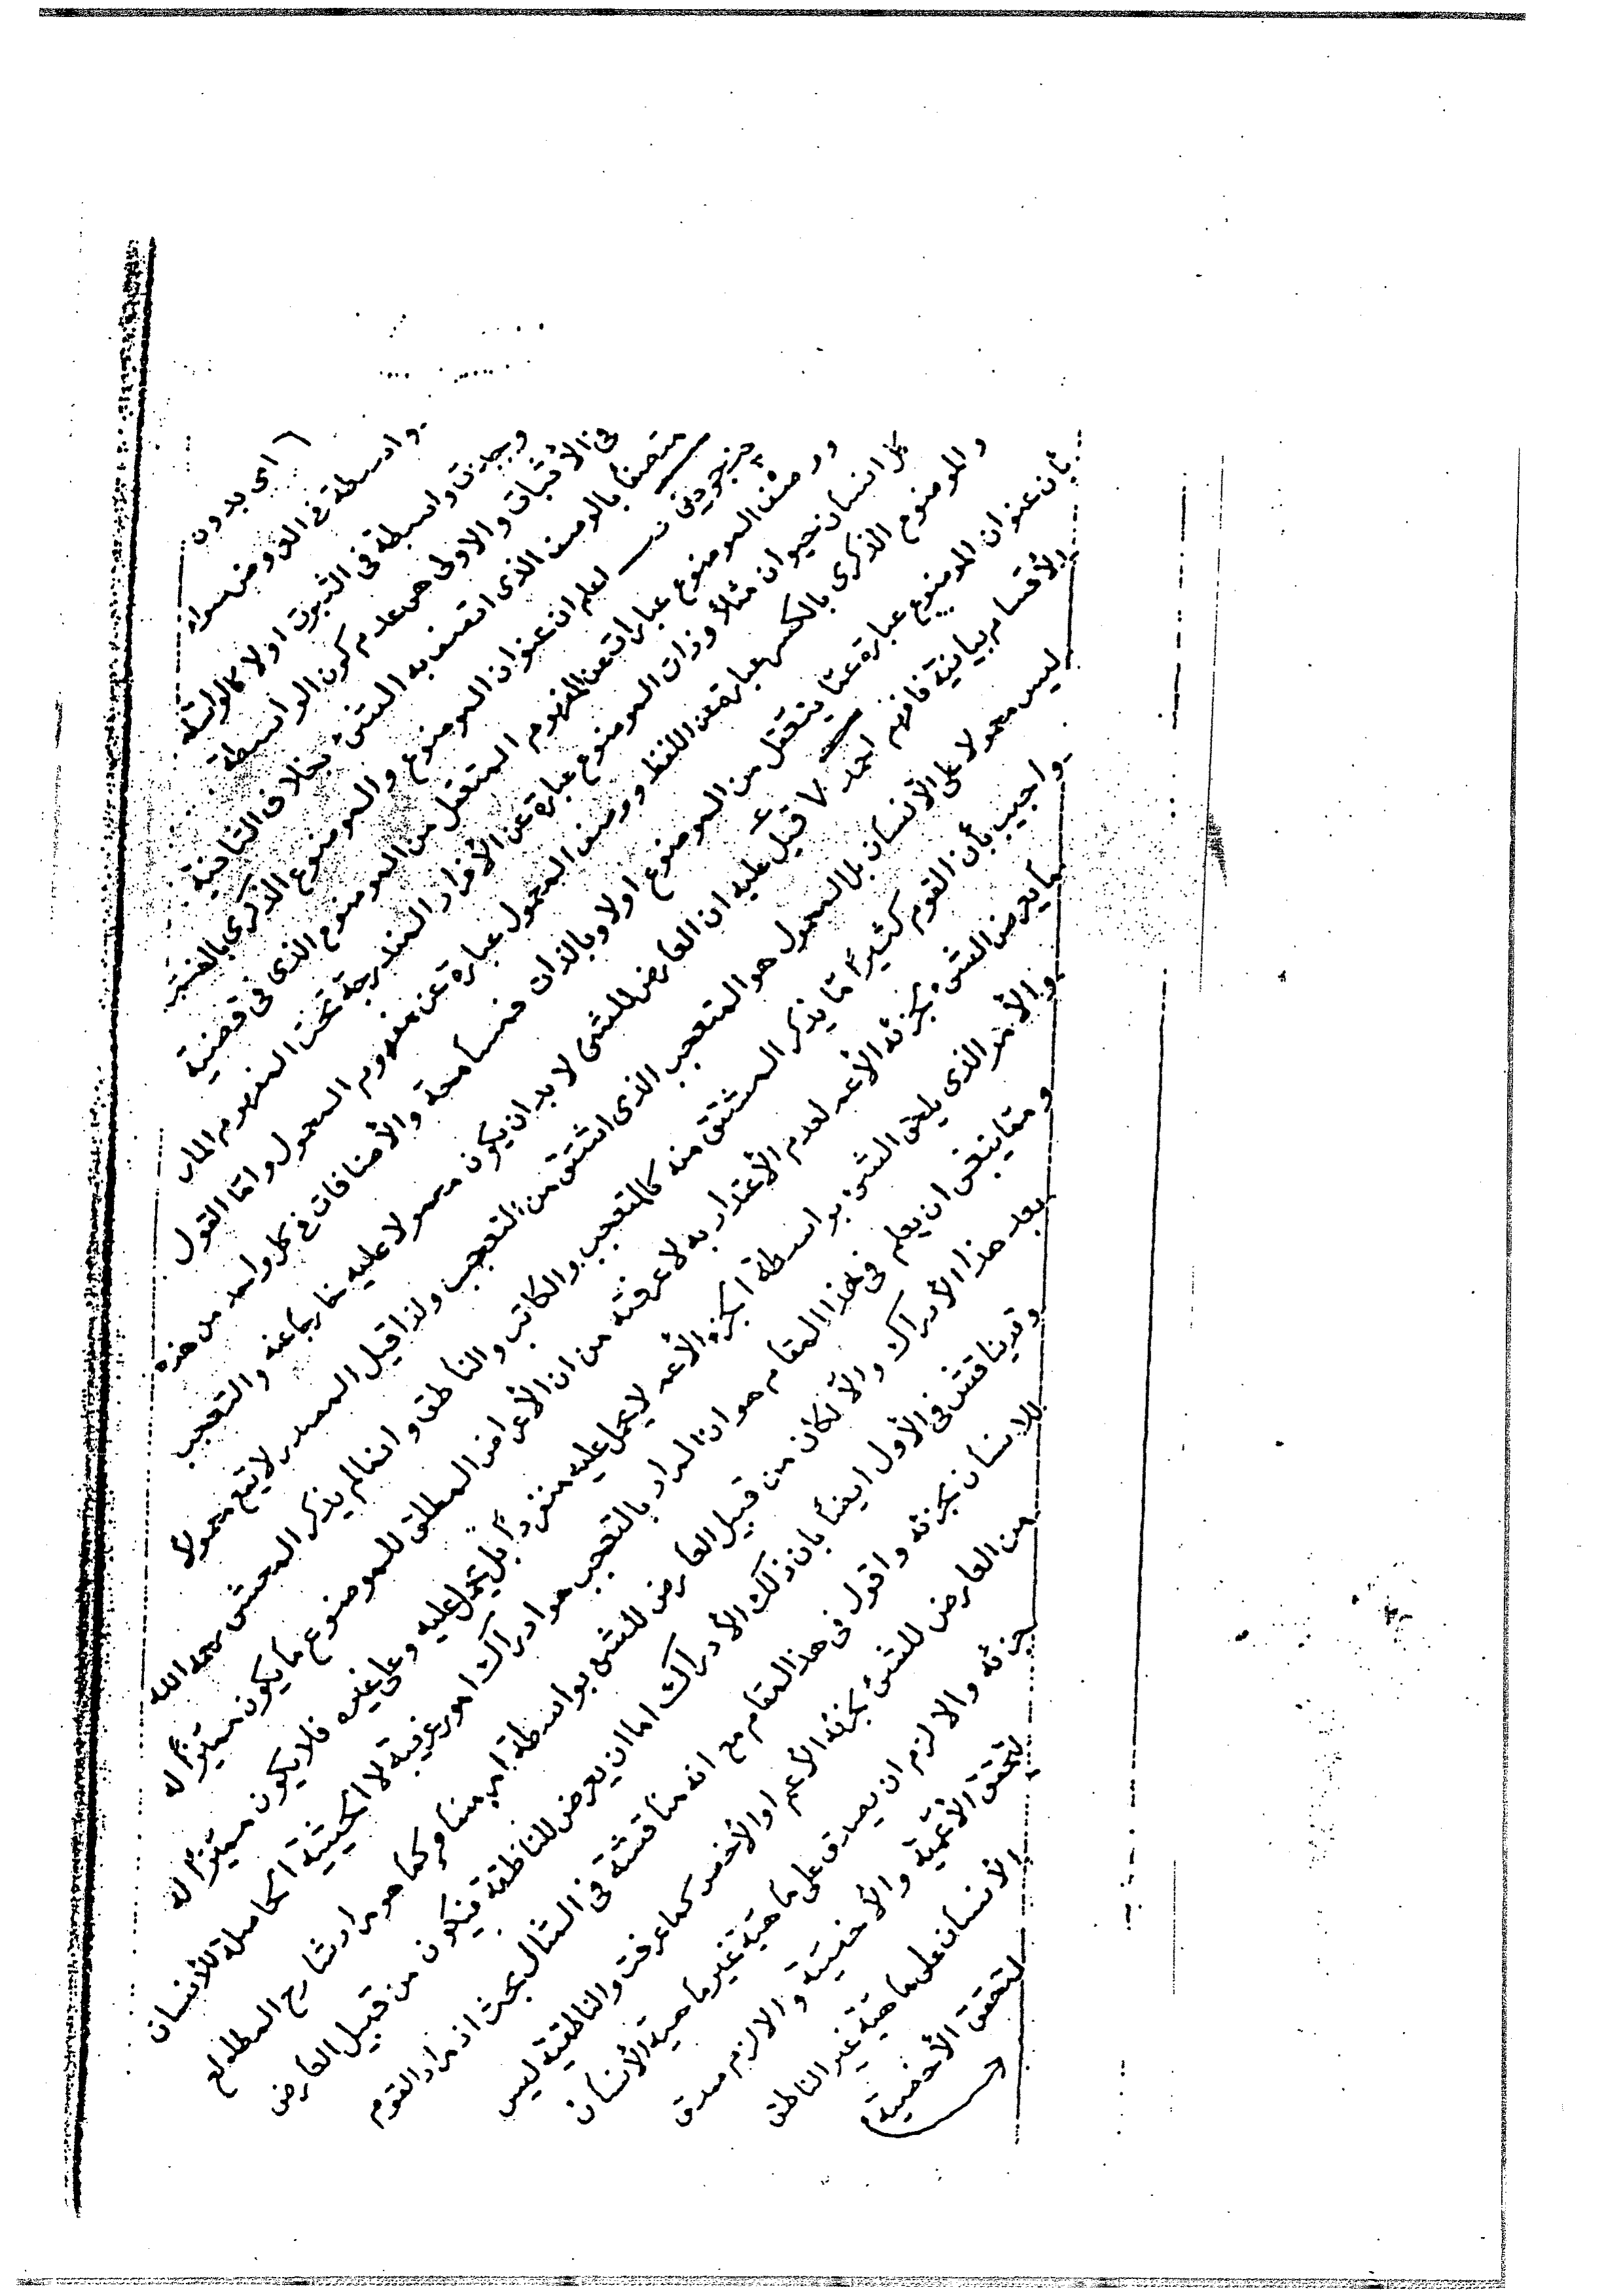 ( اى بدون
واسطة في العروض سواء
وجدت واسطة فى الثبوت اولا كالواسطة
فى الأثبات والاولى هى عدم كون الواسطة
متصفا بالوصف الذى اتصف به الشئ بخلاف الثانية
اعلم ان عنوان الموضوع والموضوع الذكرى بالفتح
ووصف الموضوع عبارات عن المفهوم المتعقل من الموضوع الذى فى قضية
كل انسان حيوان مثلاً وذات الموضوع عبارة عن الأفراد المندرجة تحت المفهوم المار
والموضوع الذكرى بالكسر عبارة عن اللفظ ووصف المحمول عبارة عن مفهوم المحمول واما القول
بأن عنوان الموضوع عبارة عمّا يتعقل من الموضوع اولا وبالذات فمسامحة والأضافات في كل واحد من هذه
الأقسام بيانية فافهم احمد ٧ قيل عليه ان العارض للشئ لا بد ان يكون محمولا عليه خارجا عنه والتعجب
ليس محمولا على الأنسان بل المحمول هو المتعجب الذى اشتق من التعجب ولذا قيل المصدر لا يقع محمولاً
واجيب بأن القوم كثيراً مّا يذكر المشتق منه كالمتعجب والكاتب والناطق وانما لم يذكر المحشى رحمه الله
ما يعرض الشئ بجزئه الأعم لعدم الأعتداد به لا عرفته من ان الأعراض المطلق للموضوع ما يكون مميزاً له
والأمر الذى يلحق الشئ بواسطة الجزء الأعم لا يحمل عليه منفرداً بل يحمل عليه وعلى غيره فلا يكون مميزاً له
ومما ينبغى ان يعلم فى هذا المقام هو ان المراد بالتعجب هو ادراك امور غريبة لا الحيثية الحاصلة للأنسان
بعد هذا الأدراك والاّ لكان من قبيل العارض للشئ بواسطة امر مساو كما هو مراد شارح المطالع
وقد يناقش فى الأول ايضاً بان ذلك الأدراك اما ان يعرض للناطقة فيكون من قبيل العارض
للانسان بجزئه واقول فى هذا المقام مع انه مناقشة فى المثال بحث اذ مراد القوم
من العارض للشئ بجزئه الأعم او الأخص كما عرفت والناطقية ليس
جزئه والا لزم ان يصدق على ماهية غير ماهية الأنسان
لتحقق الأعمية والأخصية والا لزم صدق
الأنسان على ماهية غير الناطق
لتحقق الأخصية )